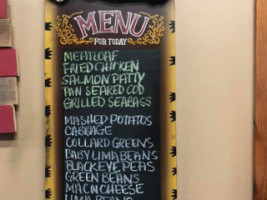 MENU
FOR TODAY
MEATLOAF
FRIED CHICKEN
SALMON PATTY
PAN SEARED COD
GRILLED SEABASS
MASHED POTATOS
CABBAGE
COLLARD GREENS
BABY LIMA BEANS
BLACKEYE PEAS
GREEN BEANS
MAC N CHEESE
LIMA BEANS